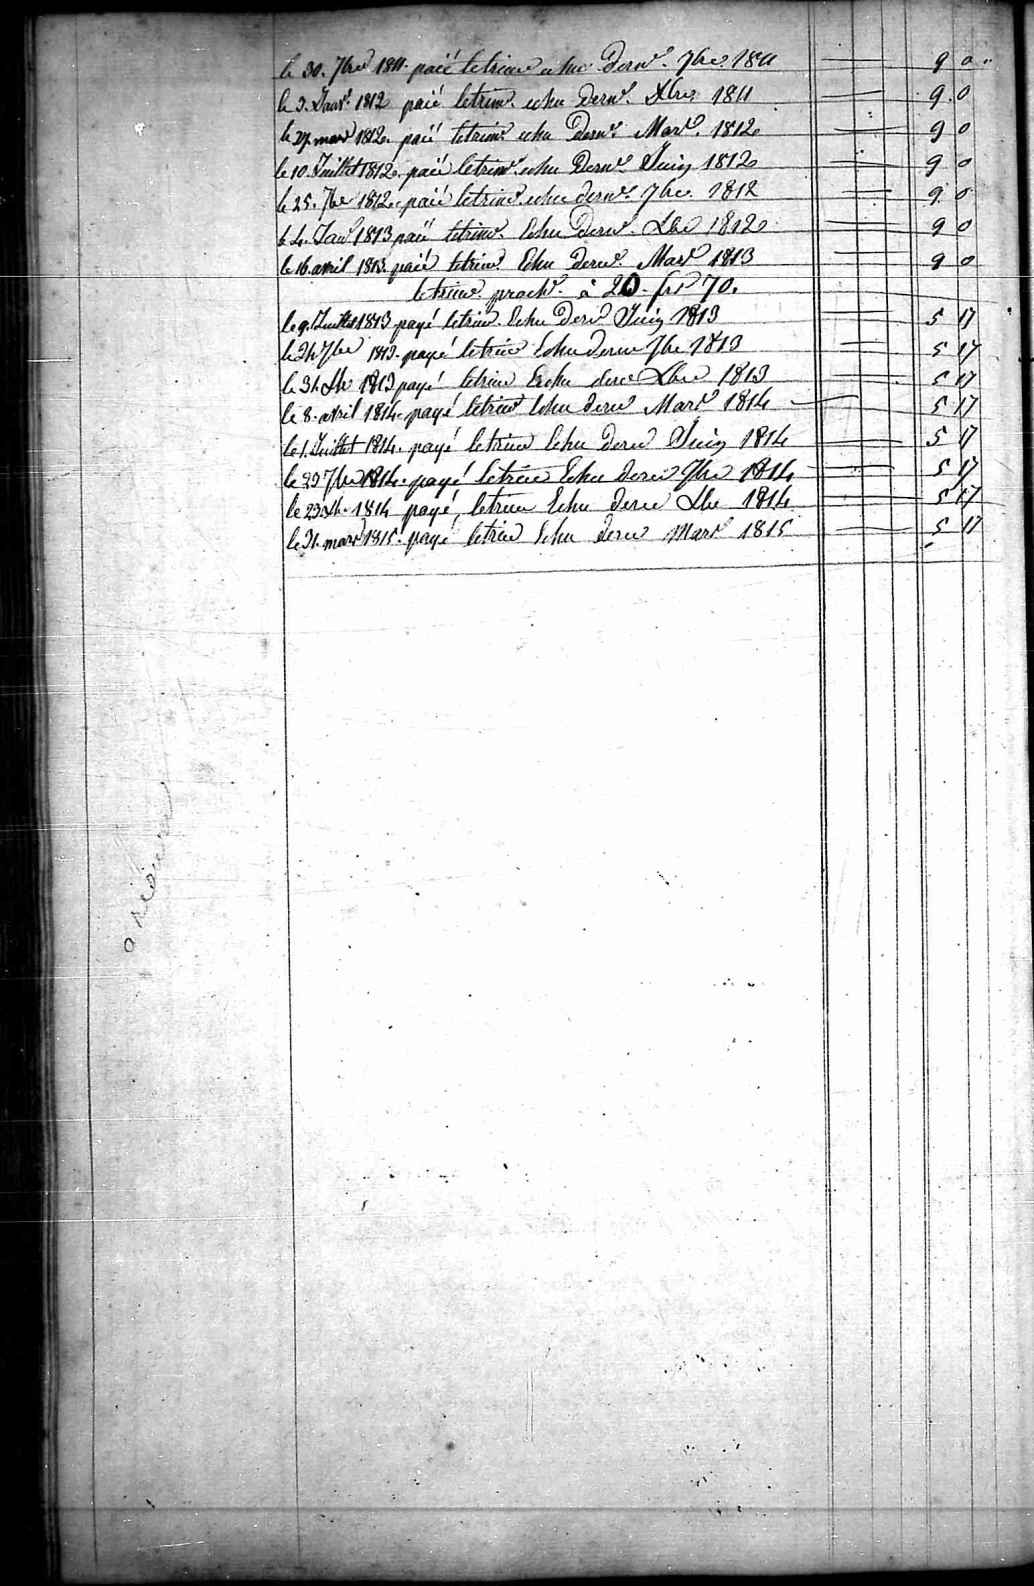 le 30. 7bre 1811. paié le trim echu dernr. 7bre. 1811 9 0 "
le 3. Janvr. 1812 paié le trimr. echu dernr. Xbre 1811 9. 0
le 27. mars 1812. paié le trimr. echu Dernr. Mars. 1812 9 0
le 10. Juillet 1812. paié le trimr. echu Dernr. Juin 1812 9 0
le 25. 7bre 1812. paié le trimr. echu dernr. 7bre. 1812 9. 0
le 4. Janr. 1813 paié le trimr. Echu Dernr. Xbre 1812 9 0
le 16 avril 1813. paié le trimr. Echu Dernr. Mars 1813 9 0
le trimr. proch. à 20. frs 70.
le 9. Juillet 1813 payé le trim. Echu Derr Juin 1813 5 17
le 24 7bre 1813. payé le trim Echu dernr 7bre 1813 5 17
le 31 Xbre 1813 payé le trim Echu derr Xbre 1813 5 17
le 8. avril 1814. payé le trimr Echu derr Mars 1814 5 17
le 1. Juillet 1814. payé le trim Echu derr Juin 1814 5 17
le 29 7bre 1814. payé le trim Echu derr 7bre 1814 5 17
le 23 Xb. 1814 payé, le trim Echu derr Xbre 1814 5 17
le 31. mars 1815. payé le trim Echu derr Mars 1815 5 17